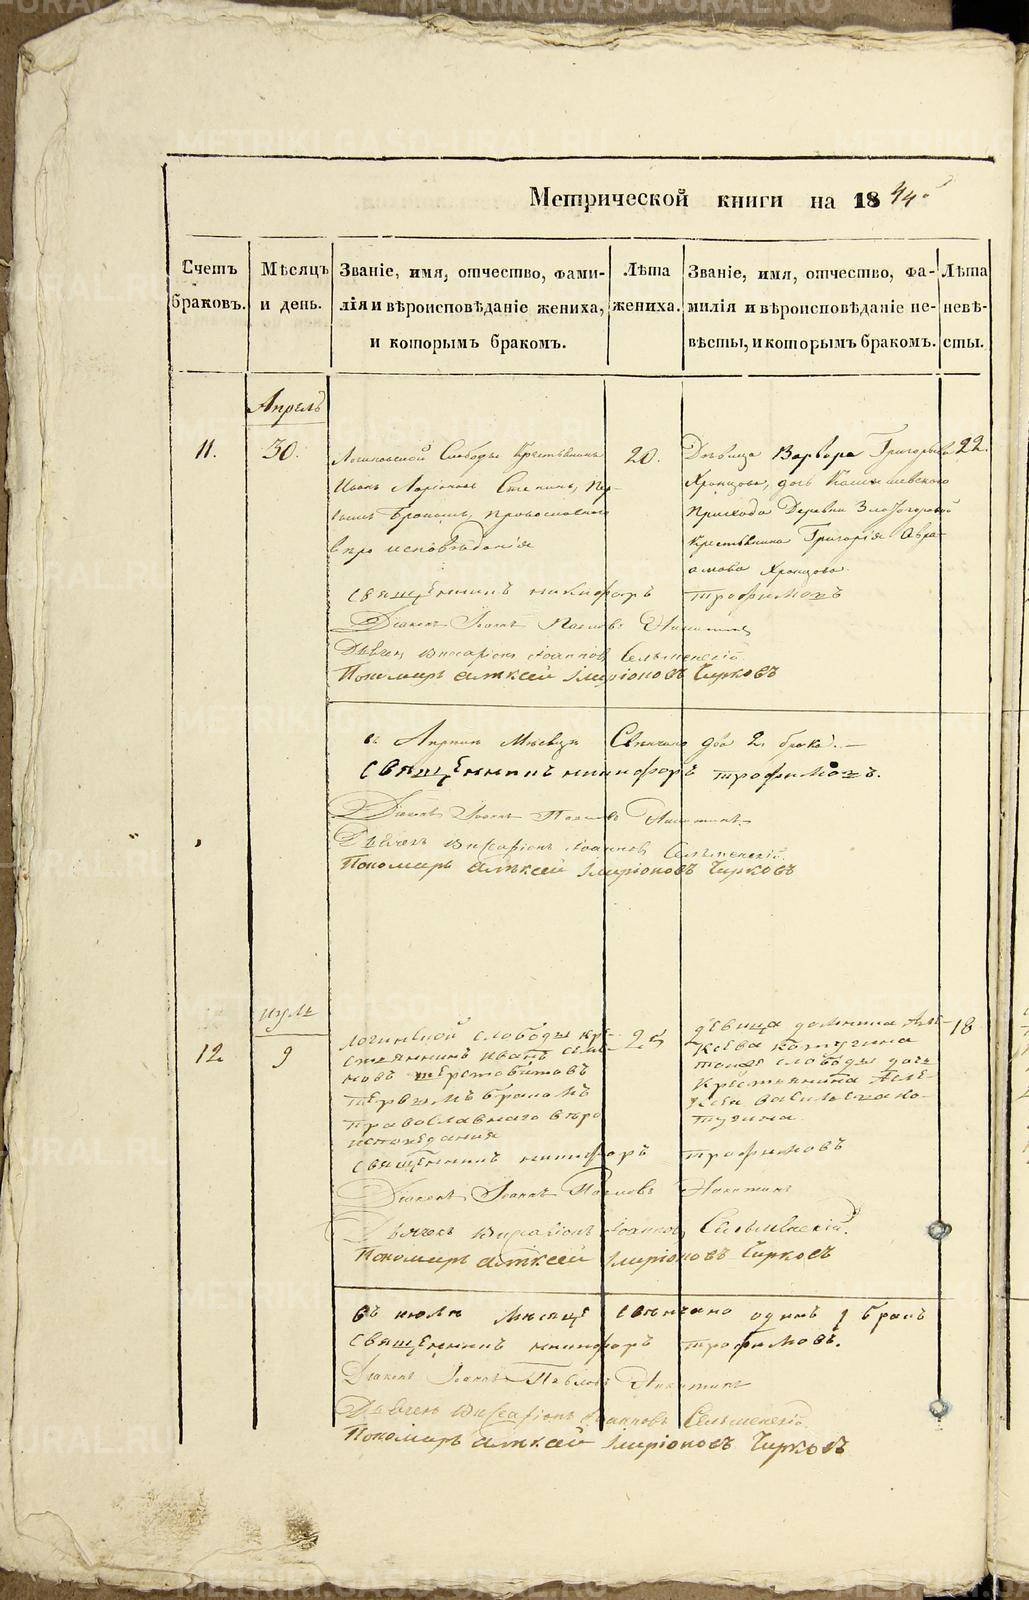 Метрической книги на 1844.
Счетъ браковъ.
Мѣсяцъ и день.
Званіе, имя, отчество, фами-
лія и вѣроисповѣданіе жениха,
и которымъ бракомъ.
Лѣта
жениха.
Званіе, имя, отчество, фа-
милія и вѣроисповѣданіе не-
вѣсты, и которымъ бракомъ.
Лѣта
невѣ-
сты.
Апрель
11.
30.
Логиновской Слободы Крестьянинъ
Иванъ Ларіоновъ пер-
вымъ бракомъ, православнаго
вѣроисповѣданія
20.
Дѣвица Варвара Григорьева
Хромцова, дочь
Прихода Деревни
Крестьянина Григорія Авра-
амова Хромцова.
22.
священникъ никифоръ трофимовъ
Діаконъ Іоаннъ Павловъ Никитинъ
Дьячекъ Виссаріонъ Іоанновъ Сельменскій
Пономарь алѣксей Імиріоновъ Чирковъ
въ Апрелѣ Мѣсяцѣ Свенчано два 2. брака. —
священникъ никифоръ трофимовъ.
Діаконъ Іоаннъ Павловъ Никитинъ.
Дьячекъ Виссаріонъ Іоанновъ Сельменскій.
Пономарь алѣксей Імиріоновъ Чирковъ
июль
12
9
логинской слободы кре-
стьянинъ иванъ семе-
новъ
первымъ бракомъ
православнаго вѣро
исповедания
25
девица домнина але-
ксева
тоже слободы дочь
крестьянина але-
ксея васильева ко-
тугина
18
священникъ никифоръ трофимовъ
Діаконъ Іоаннъ Павловъ Никитинъ
Дьячекъ Виссаріонъ Іоанновъ Сельменскій.
Пономарь алѣксей Імиріоновъ Чирковъ
въ июлѣ мѣсяце свѣнчано одинъ 1 бракъ
священникъ никифоръ трофимовъ.
Діаконъ Іоаннъ Павловъ Никитинъ
Дьячекъ Виссаріонъ Іоанновъ Сельменскій
Пономарь алѣксей Імиріоновъ Чирковъ
METRIKI.GASO-URAL.RU